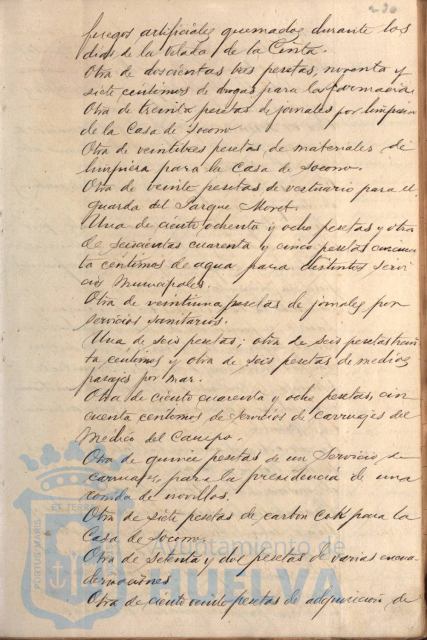 230
fuegos artificiales quemados durante los
dias de la Velada de la Cinta.
Otra de doscientas tres pesetas, noventa y
siete centimos de drogas para la farmacia.
Otra de treinta pesetas de jornales por limpieza
de la Casa de Socorro
Otra de veintitres pesetas de materiales de
limpieza para la Casa de Socorro.
Otra de veinte pesetas de vestuario para el
guarda del Parque Moret.
Una de ciento ochenta y ocho pesetas y otra
de seiscientas cuarenta y cinco pesetas cincuen
ta centimos de agua para distintos servi
cios Municipales.
Otra de veintiuna pesetas de jornales por
servicios sanitarios.
Una de seis pesetas; otra de seis pesetas trein
ta centimos y otra de seis pesetas de medios
pasajes por mar.
Otra de ciento cuarenta y ocho pesetas, cin
cuenta centimos de servicios de carruajes del
Médico del Campo.
Otra de quince pesetas de un servicio de
carruajes, para la presidencia de una
corrida de novillos.
Otra de siete pesetas de carbon cok para la
Casa de Socorro.
Otra de setenta y dos pesetas de varias encua
dernaciones
Otra de ciento veinte pesetas de adquisicion de
PORTUS MARIS
Ayuntamiento de
HUELVA